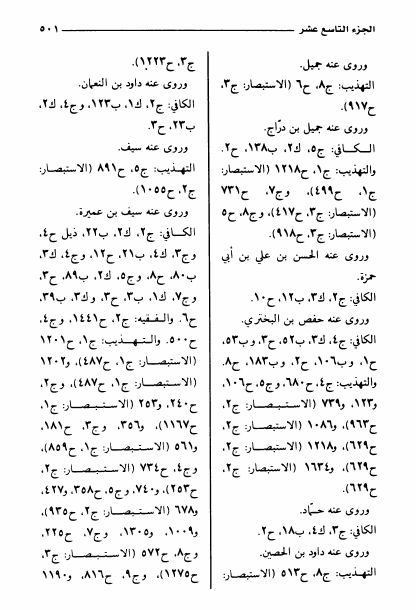 الجزء التاسع عشر ٥٠١
وروى عنه جميل.
التهذيب: ج٨، ح٦ (الاستبصار: ج٣،
ح٩١٧).
وروى عنه جميل بن درّاج.
الكافي: ج٥، ك٢، ب١٣٨، ح٢.
والتهذيب: ج١، ح١٢١٨ (الاستبصار:
ج١، ح٤٩٩)، وج٧، ح٧٣١
(الاستبصار: ج٣، ح٤١٧)، وج٨، ح٥
(الاستبصار: ج٣، ح٩١٨).
وروى عنه الحسن بن علي بن أبي
حمزة.
الكافي: ج٢، ك٣، ب١٢، ح١٠.
وروى عنه حفص بن البختري.
الكافي: ج٤، ك٣، ب٥٢، ح٣، وب٥٣،
ح١، وب١٠٦، ح٢، وب١٨٣، ح٨.
والتهذيب: ج٤، ح٦٨٠، وج٥، ح١٠٦،
و١٢٣، و٧٣٩ (الاستبصار: ج٢،
ح٩٦٣)، و١٠٨٦ (الاستبصار: ج٢،
ح٦٢٩)، و١٢١٨ (الاستبصار: ج٢،
ح٦٢٩)، و١٦٣٤ (الاستبصار: ج٢،
ح٦٢٩).
وروى عنه حمّاد.
الكافي: ج٣، ك٤، ب١٨، ح٢.
وروى عنه داود بن الحصين.
التهذيب: ج٨، ح٥١٣ (الاستبصار:
ج٣، ح١٢٢٣).
وروى عنه داود بن النعمان.
الكافي: ج٢، ك١، ب١٢٣، وج٤، ك٢،
ب٢٣، ح٣.
وروى عنه سيف.
التهذيب: ج٥، ح٨٩١ (الاستبصار:
ج٢، ح١٠٥٥).
وروى عنه سيف بن عميرة.
الكافي: ج٢، ك٢، ب٢٢، ذيل ح٤،
وج٣، ك٤، ب٢١، ح١٢، وج٤، ك٣،
ب٨٠، ح٨، وج٥، ك٢، ب٨٩، ح٣،
وج٧، ك١، ب٣، ح٣، وك٣، ب٣٩،
ح٦. والفقيه: ج٢، ح١٤٤١، وج٤،
ح٥٠٠. والتهذيب: ج١، ح١٢٠١
(الاستبصار: ج١، ح٤٨٧)، و١٢٠٢
(الاستبصار: ج١، ح٤٨٧)، وج٢،
ح٢٤٠، و٢٥٣ (الاستبصار: ج١،
ح١١٦٧)، و٣٥٦، وج٣، ح١٨١،
و٥٦١ (الاستبصار: ج١، ح٨٥٩)،
وج٤، ح٧٣٤ (الاستبصار: ج٢،
ح٢٥٣)، و٧٤٠، وج٥، ح٣٥٨، و٤٢٧،
و٦٧٨ (الاستبصار: ج٢، ح٩٣٥)،
و١٠٠٩، و١٣٠٥، وج٧، ح٢٢٥،
وج٨، ح٥٧٢ (الاستبصار: ج٣،
ح١٢٧٥)، وج٩، ح٨١٦، و١١٩٠